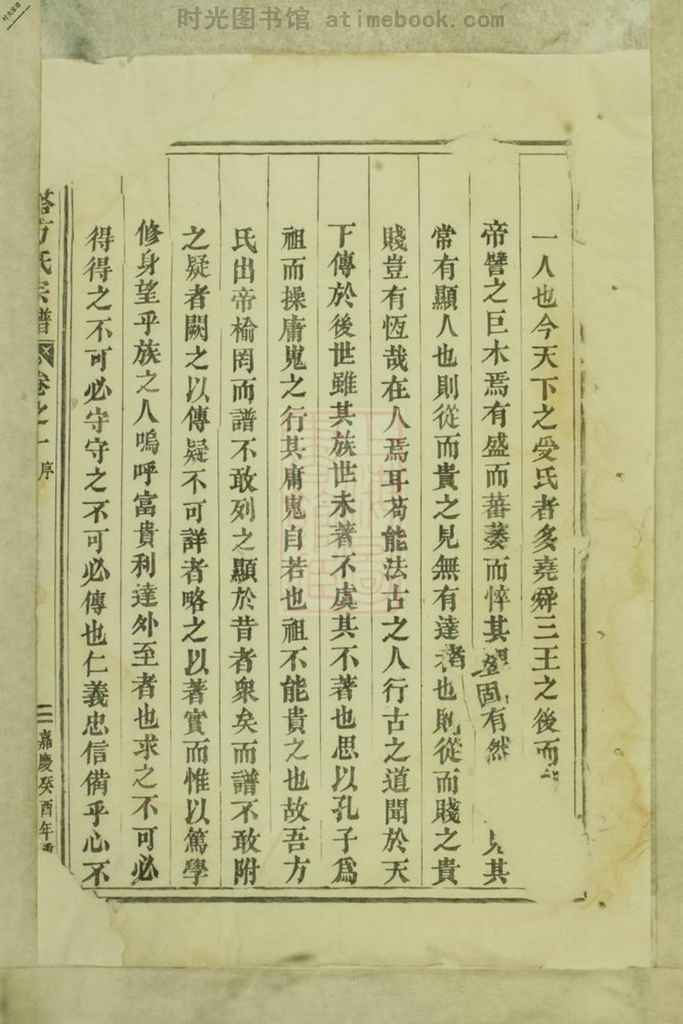 时光图书馆 atimebook.com
一人也今天下之受氏者多堯舜三王之後而
帝譬之巨木焉有盛而蕃萎而悴其固有然見其
常有顯人也則從而貴之見無有達者也則從而賤之貴
賤豈有恆哉在人焉耳苟能法古之人行古之道聞於天
下傳於後世雖其族世未著不虞其不著也思以孔子爲
祖而操庸嵬之行其庸嵬自若也祖不能貴之也故吾方
氏出帝榆罔而譜不敢列之顯於昔者衆矣而譜不敢附
之疑者闕之以傳疑不可詳者略之以著實而惟以篤學
修身望乎族之人嗚呼富貴利達外至者也求之不可必
得得之不可必守守之不可必傳也仁義忠信備乎心不
方氏宗譜 卷之一 序 二 嘉慶癸酉年重